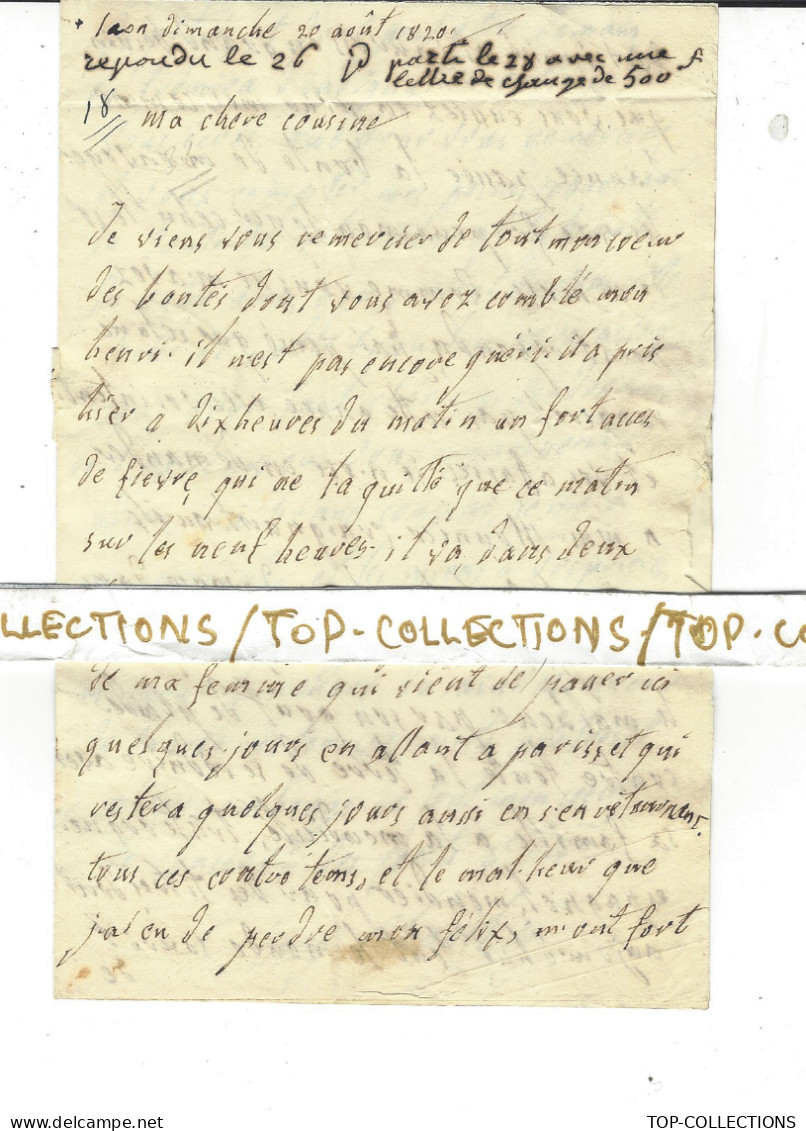 + laon dimanche 20 août 1820.
repondu le 26 parti le 28 avec une
lettre de change de 500 f
18
ma chere cousine
Je viens vous remercier de tout mon coeur
des bontés dont vous avez comblé mon
henri. il n'est pas encore guéri: il a pris
hier a dix heures du matin un fort acces
de fievre, qui ne l'a quitté que ce matin
sur les neuf heures. il va, dans deux
LLECTIONS / TOP-COLLECTIONS / TOP-CO
de ma femme qui vient de passer ici
quelques jours en allant a paris, et qui
restera quelques jours aussi en s'en retournant.
tous ces contretems, et le malheur que
j'ai eu de perdre mon félix, m'ont fort
TOP-COLLECTIONS